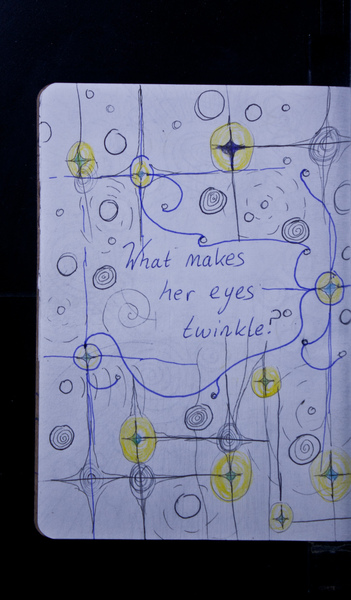 What makes
her eyes
twinkle?